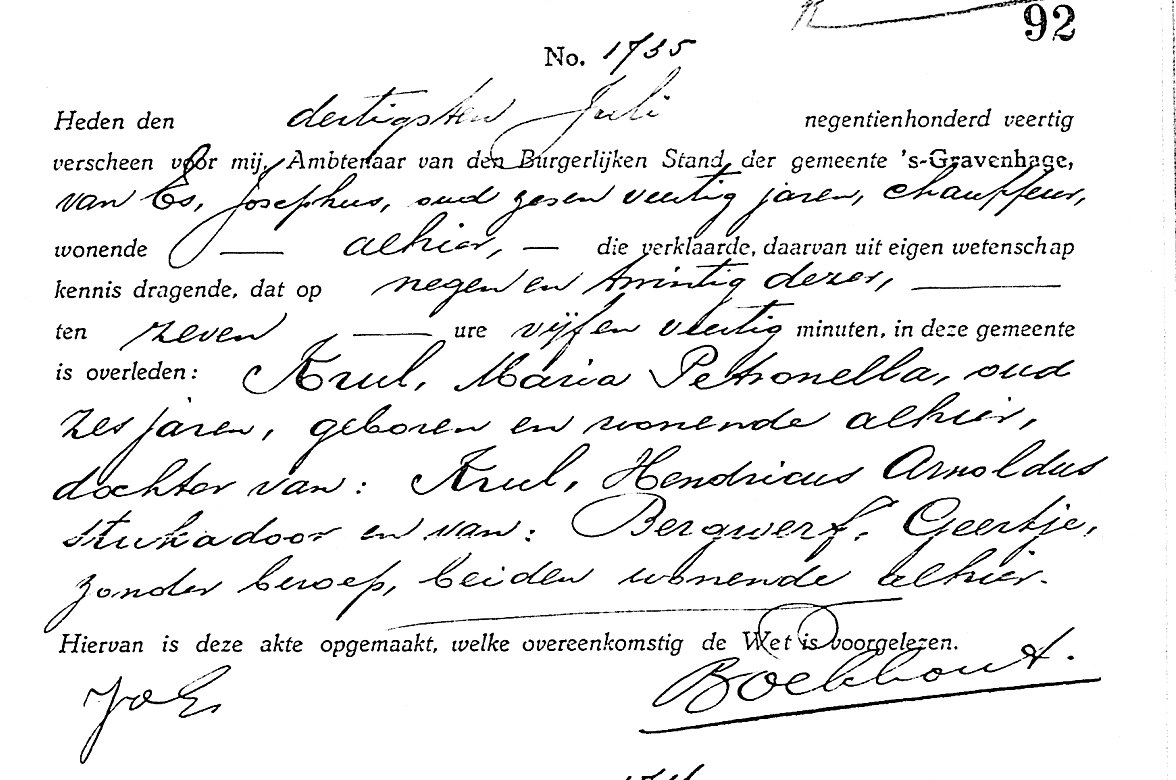 92
No. 1735
Heden den dertigsten Juli negentienhonderd veertig
verscheen voor mij, Ambtenaar van den Burgerlijken Stand der gemeente 's-Gravenhage,
van Es, Josephus, oud zesen veertig jaren, chauffeur,
wonende alhier, die verklaarde, daarvan uit eigen wetenschap
kennis dragende, dat op negen en twintig dezer,
ten zeven ure vijf en veertig minuten, in deze gemeente
is overleden: Krul, Maria Petronella, oud
zes jaren, geboren en wonende alhier,
dochter van: Krul, Hendricus Arnoldus
stukadoor en van: Bergwerf, Geertje,
zonder beroep, beiden wonende alhier.
Hiervan is deze akte opgemaakt, welke overeenkomstig de Wet is voorgelezen.
Boekhout.